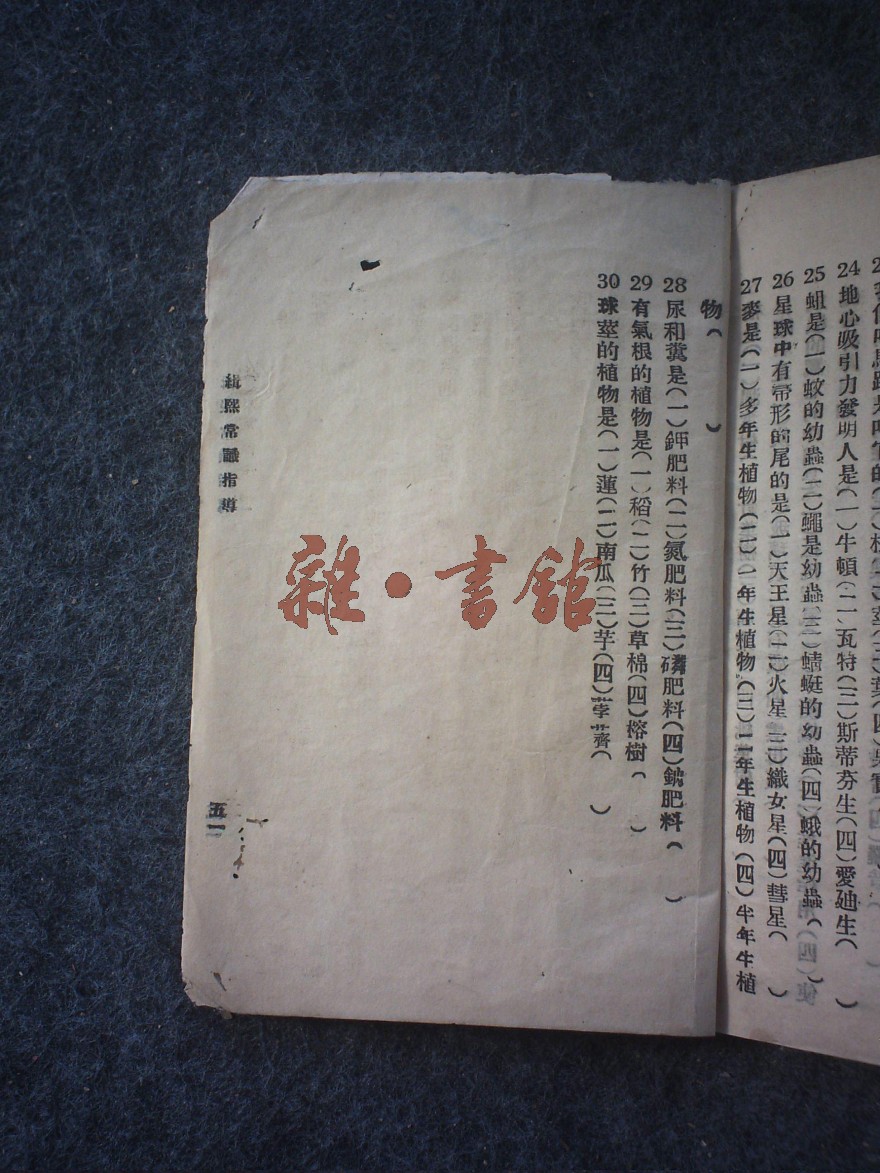 24 地心吸引力發明人是(一)牛頓(二)瓦特(三)斯蒂芬生(四)愛廸生( )
25 蛆是(一)蚊的幼蟲(二)蠅是幼蟲(三)蜻蜓的幼蟲(四)蛾的幼蟲( )
26 星球中有帚形的尾的是(一)天王星(二)火星(三)織女星(四)彗星( )
27 麥是(一)多年生植物(二)一年生植物(三)二年生植物(四)半年生植
物( )
28 尿和糞是(一)鉀肥料(二)氮肥料(三)磷肥料(四)鈉肥料( )
29 有氣根的植物是(一)稻(二)竹(三)草棉(四)榕樹( )
30 球莖的植物是(一)蓮(二)南瓜(三)芋(四)荸薺( )
緝熙常識指導
五一
雜·書舘